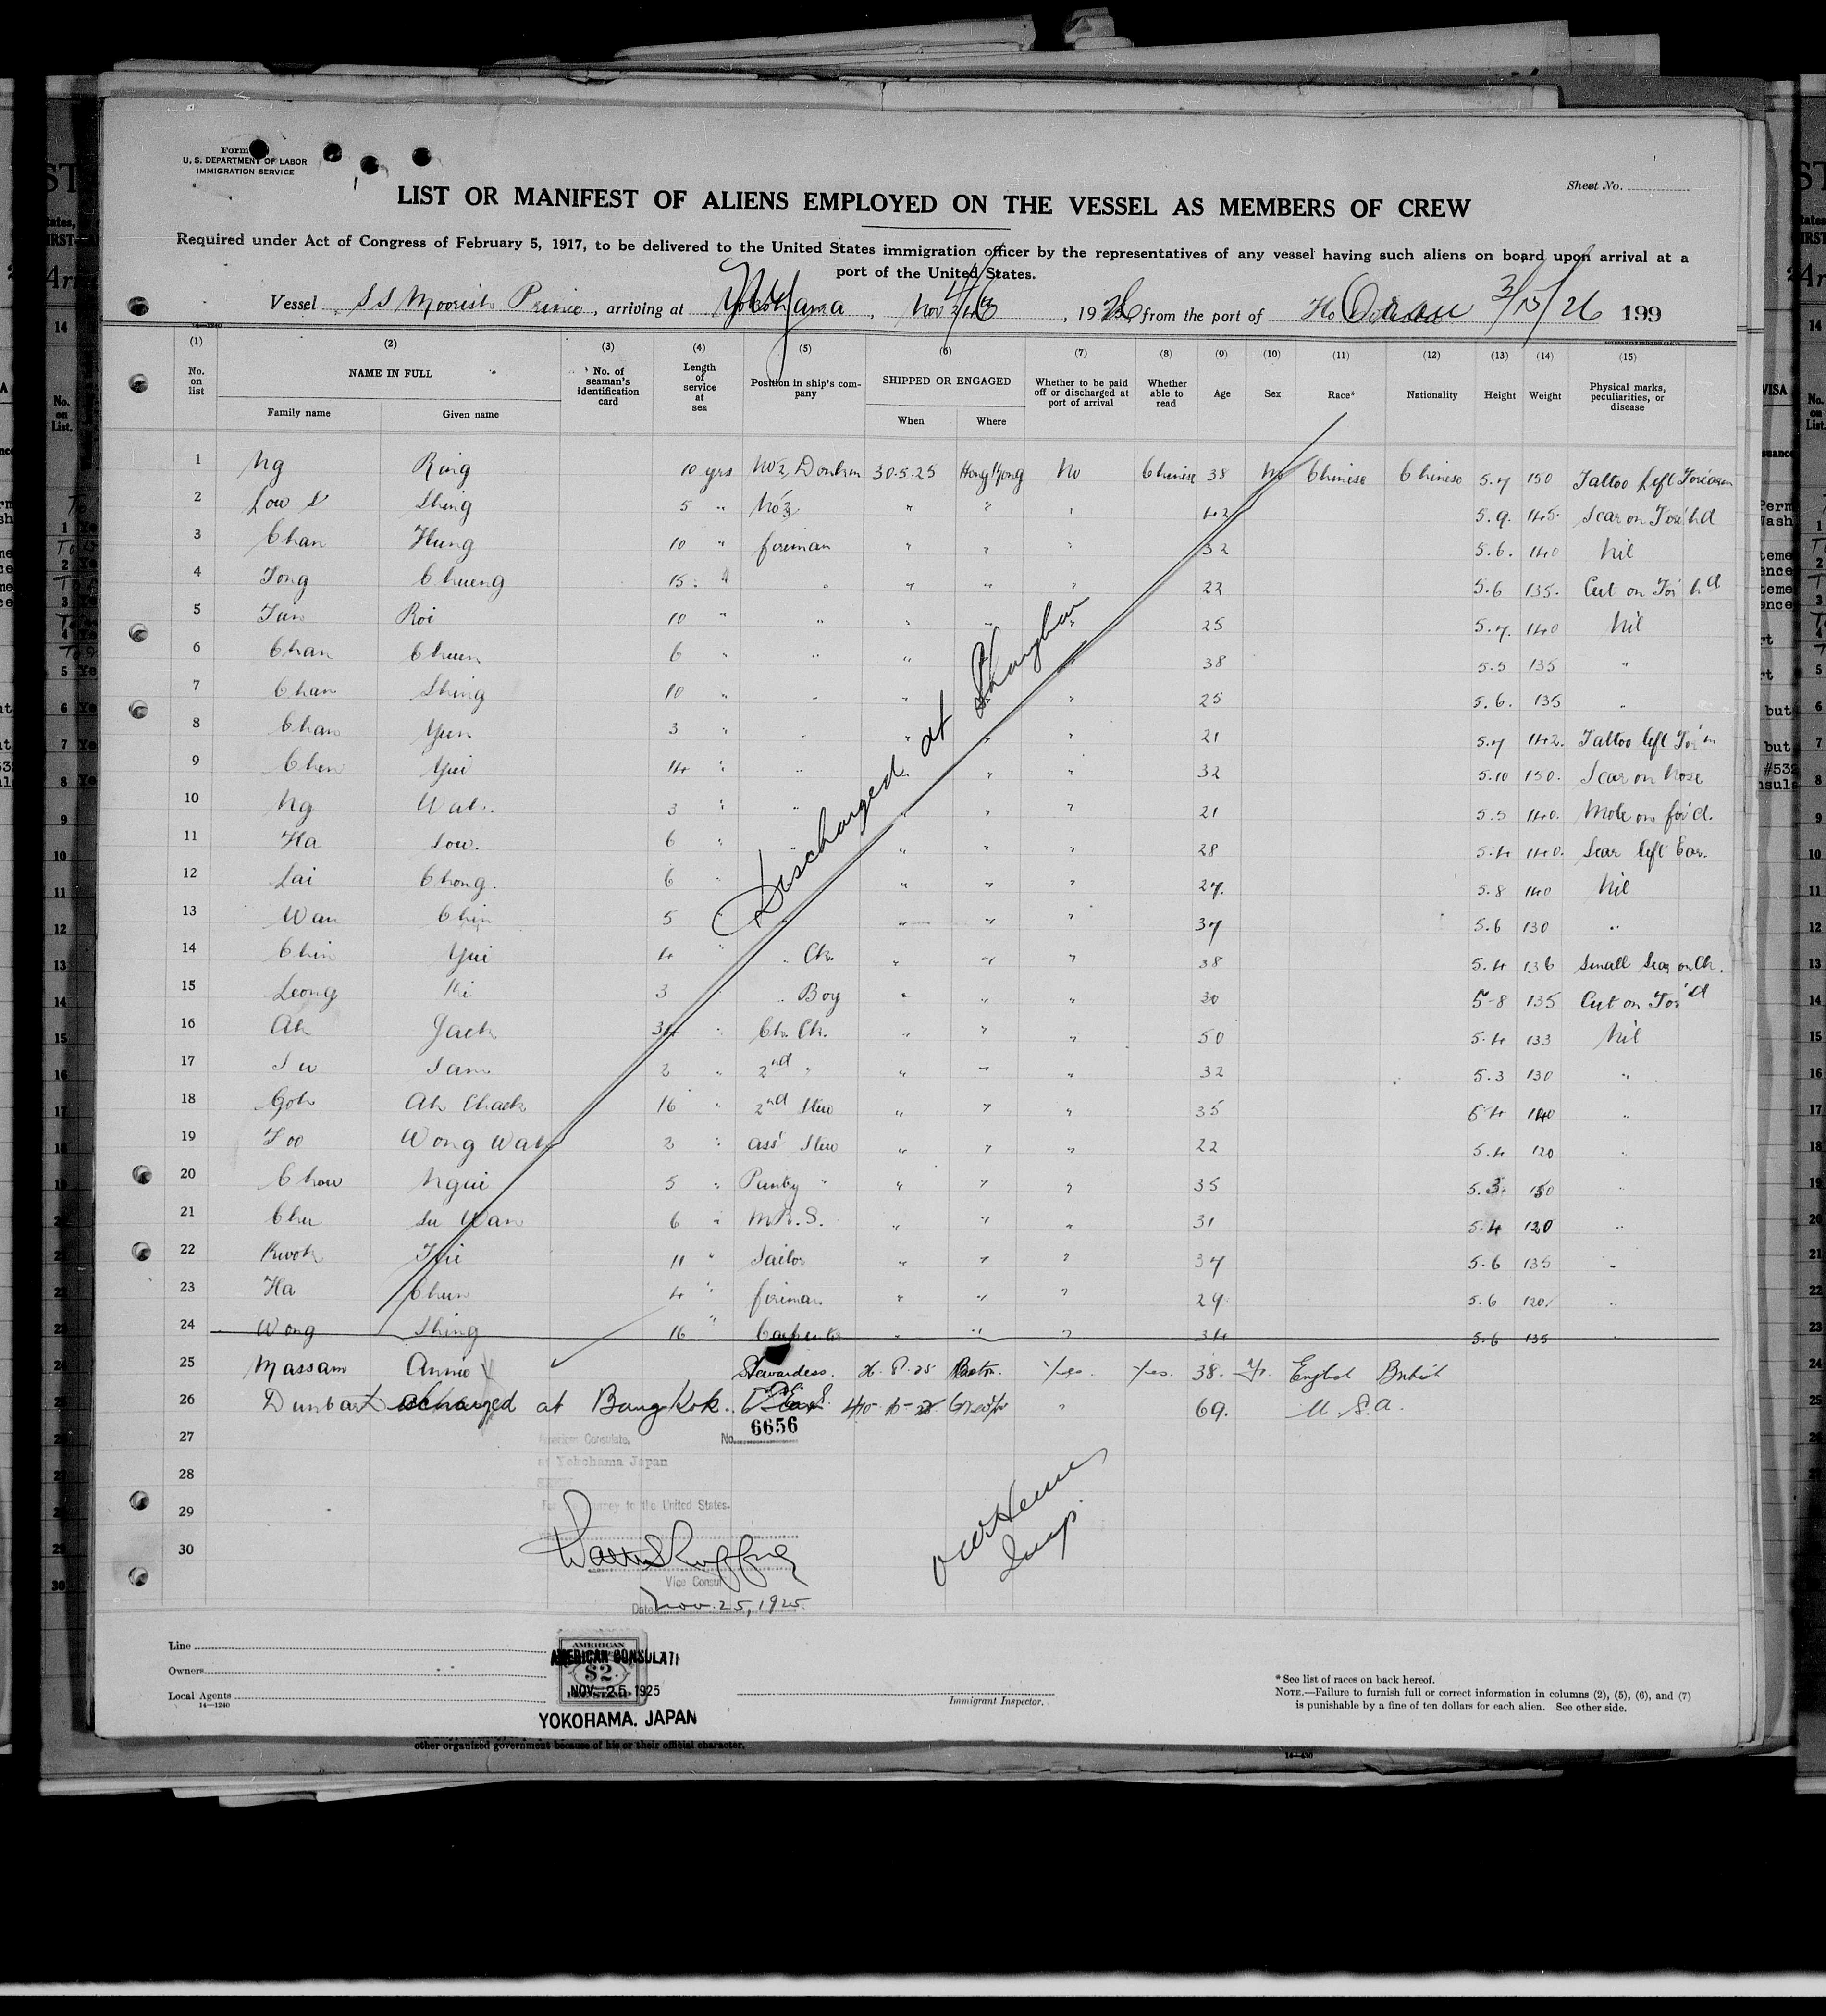 Form
U. S. DEPARTMENT OF LABOR
IMMIGRATION SERVICE
Sheet No.
LIST OR MANIFEST OF ALIENS EMPLOYED ON THE VESSEL AS MEMBERS OF CREW
Required under Act of Congress of February 5, 1917, to be delivered to the United States immigration officer by the representatives of any vessel having such aliens on board upon arrival at a
port of the United States.
Vessel SS Moorish Prince, arriving at Yokohama, Nov 24, 19 26, from the port of Oran 3/15/26 199
14—1240
(1) (2) (3) (4) (5) (6) (7) (8) (9) (10) (11) (12) (13) (14) (15)
No. on list NAME IN FULL Family name Given name No. of seaman's identification card Length of service at sea Position in ship's company SHIPPED OR ENGAGED When Where Whether to be paid off or discharged at port of arrival Whether able to read Age Sex Race* Nationality Height Weight Physical marks, peculiarities, or disease
1 Ng Ring 10 yrs No 2 Donkm 30.5.25 Hong Kong No Chinese 38 M Chinese Chinese 5.7 150 Tattoo Left Forearm
2 Low S Shing 5 " No 3 " " " 42 5.9. 145. Scar on Fore'hd
3 Chan Hung 10 " fireman " " " 32 5.6. 140 Nil
4 Tong Chueng 15. " " " " " 22 5.6 135. Cut on For'hd
5 Roi 10 " " " " " 25 5.7. 140 Nil
6 Chan Chuen 6 " " " " 38 5.5 135 "
7 Chan Shing 10 " " " " 25 5.6. 135 "
8 Chan Yun 3 " " " " " 21 5.7 142. Tattoo left For'm
9 Chen Yui 14 " " " " " 32 5.10 150. Scar on Nose
10 Ng Wah. 3 " " " " " 21 5.5 140. Mole on for'd.
11 Ha Sow. 6 " " " " " 28 5.4 140. Scar left Ear.
12 Lai Chong. 6 " " " " 27. 5.8 140 Nil
13 Wan Chin 5 " " " 37 5.6 130 "
14 Chin Yui 4 " " Ck. " " " 38 5.4 136 Small Scar on Ch.
15 Leong Ki 3 " " Boy " " " 30 5-8 135 Cut on For'd
16 Ah Jack 34 " Ch. Ck. " " " 50 5.4 133 Nil
17 Su Sam 2 " 2nd " " " " 32 5.3 130 "
18 Goh Ah Chack 16 " 2nd Stew " " " 35 5.4 140 "
19 Foo Wong Wah 2 " Ass' Stew " " " 22 5.4 120 "
20 Chow Ngui 5 " Pantry " " " " 35 5.3. "
21 Chu Su Wan 6 " M.R.S. " " " 31 5.4 120 "
22 Kwok 11 " Sailor " " " 37 5.6 135 "
23 Ha Chun 4 " fireman " " " 29 5.6 120 "
24 Wong Shing 16 " Carpenter " " " 34 5.6 135 "
Discharged at Shanghai
25 Massam Annie Stewardess. Boston. Yes. Yes. 38. English British
26 Dunbar Discharged at BangKok. " 69. U.S.A.
27
28
29
30
American Consulate. No. 6656
at Yokohama Japan
SEEN
For the journey to the United States.
Vice Consul
Date Nov. 25, 1925.
Insp.
Line
Owners
Local Agents
14—1240
AMERICAN
$2
AMERICAN CONSULATE
NOV 25 1925
YOKOHAMA, JAPAN
Immigrant Inspector.
* See list of races on back hereof.
NOTE.—Failure to furnish full or correct information in columns (2), (5), (6), and (7)
is punishable by a fine of ten dollars for each alien. See other side.
other organized government because of his or their official character.
14—430